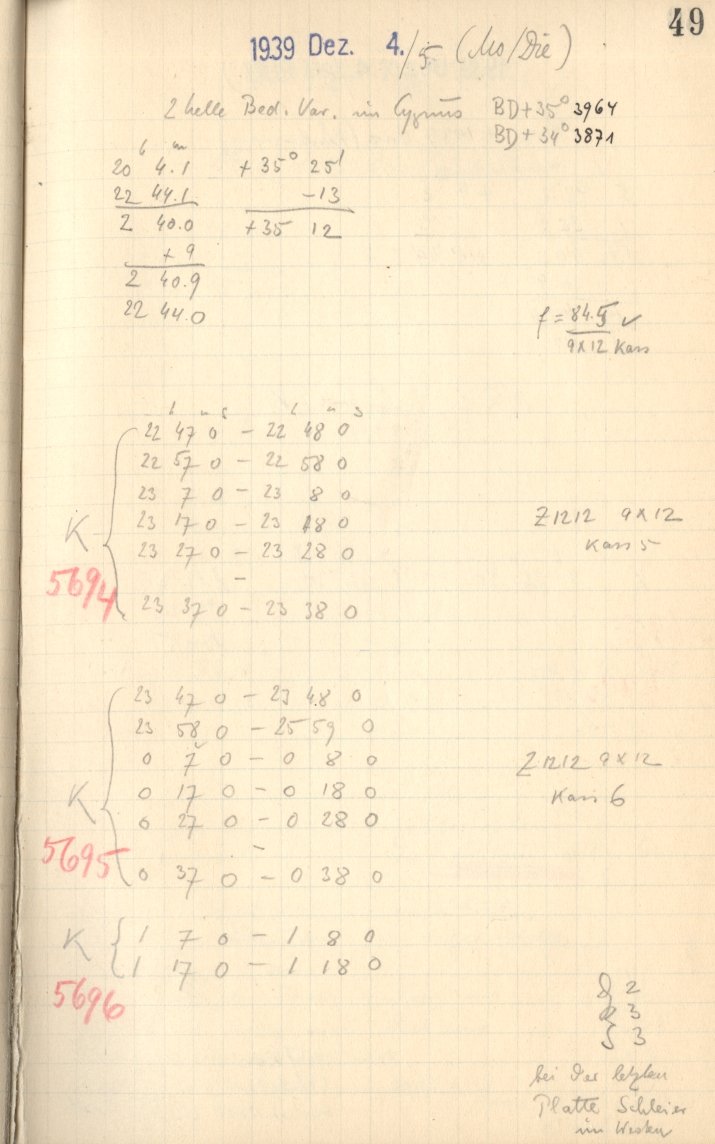 49
1939 Dez. 4./5 (Mo/Die)
2 helle Bed. Var. im Cygnus BD+35° 3964
BD+34° 3871
h m
20 4.1 +35° 25'
22 44.1 -13
2 40.0 +35 12
+9
2 40.9
22 44.0
f = 84.5 ✓
9x12 Kass
h m s h m s
22 47 0 - 22 48 0
22 57 0 - 22 58 0
23 7 0 - 23 8 0
23 17 0 - 23 18 0
K Z1212 9x12
23 27 0 - 23 28 0
Kass 5
5694
-
23 37 0 - 23 38 0
23 47 0 - 23 48 0
23 58 0 - 25 59 0
0 7 0 - 0 8 0
Z1212 9x12
K 0 17 0 - 0 18 0
Kass 6
0 27 0 - 0 28 0
5695
-
0 37 0 - 0 38 0
K 1 7 0 - 1 8 0
1 17 0 - 1 18 0
5696
2
3
S 3
bei der letzten
Platte Schleier
im Westen